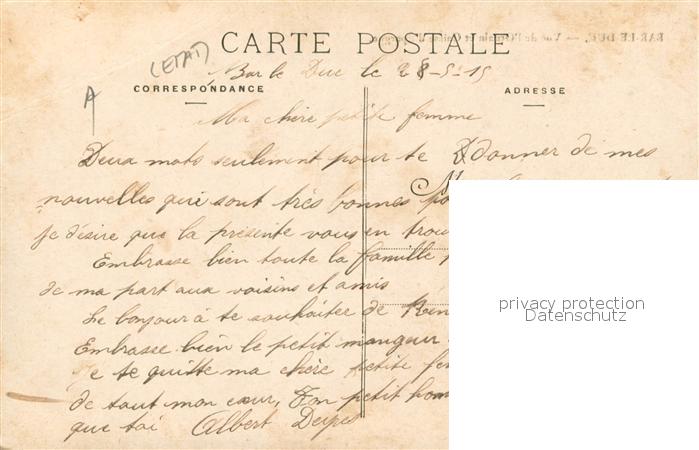 CARTE POSTALE
(ETAT)
A
Bar le Duc le 28-5-15
CORRESPONDANCE
ADRESSE
Ma chère petite femme
Deux mots seulement pour te donner de mes
nouvelles qui sont très bonnes
je désire que la présente vous en trou
Embrasse bien toute la famille
de ma part aux voisins et amis
Le bonjour à te souhaiter de
Embrasse bien le petit mangeur
e te quitte ma chère petite fe
de tout mon cœur, Ton petit hom
que toi Albert
privacy protection
Datenschutz